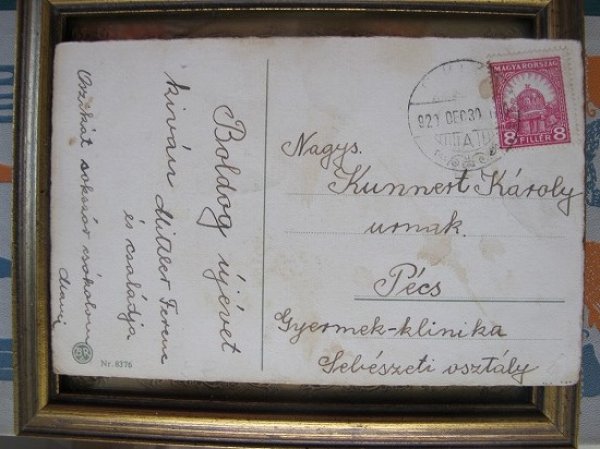 Boldog újévet
kiván Mittler Ferenc
és családja
sokszor csókolom
Nr. 8376
MAGYARORSZÁG
8 FILLÉR 8
DEC 30
Nagys.
Kunnert Károly
urnak.
Pécs
Gyermek-klinika
Sebészeti osztály